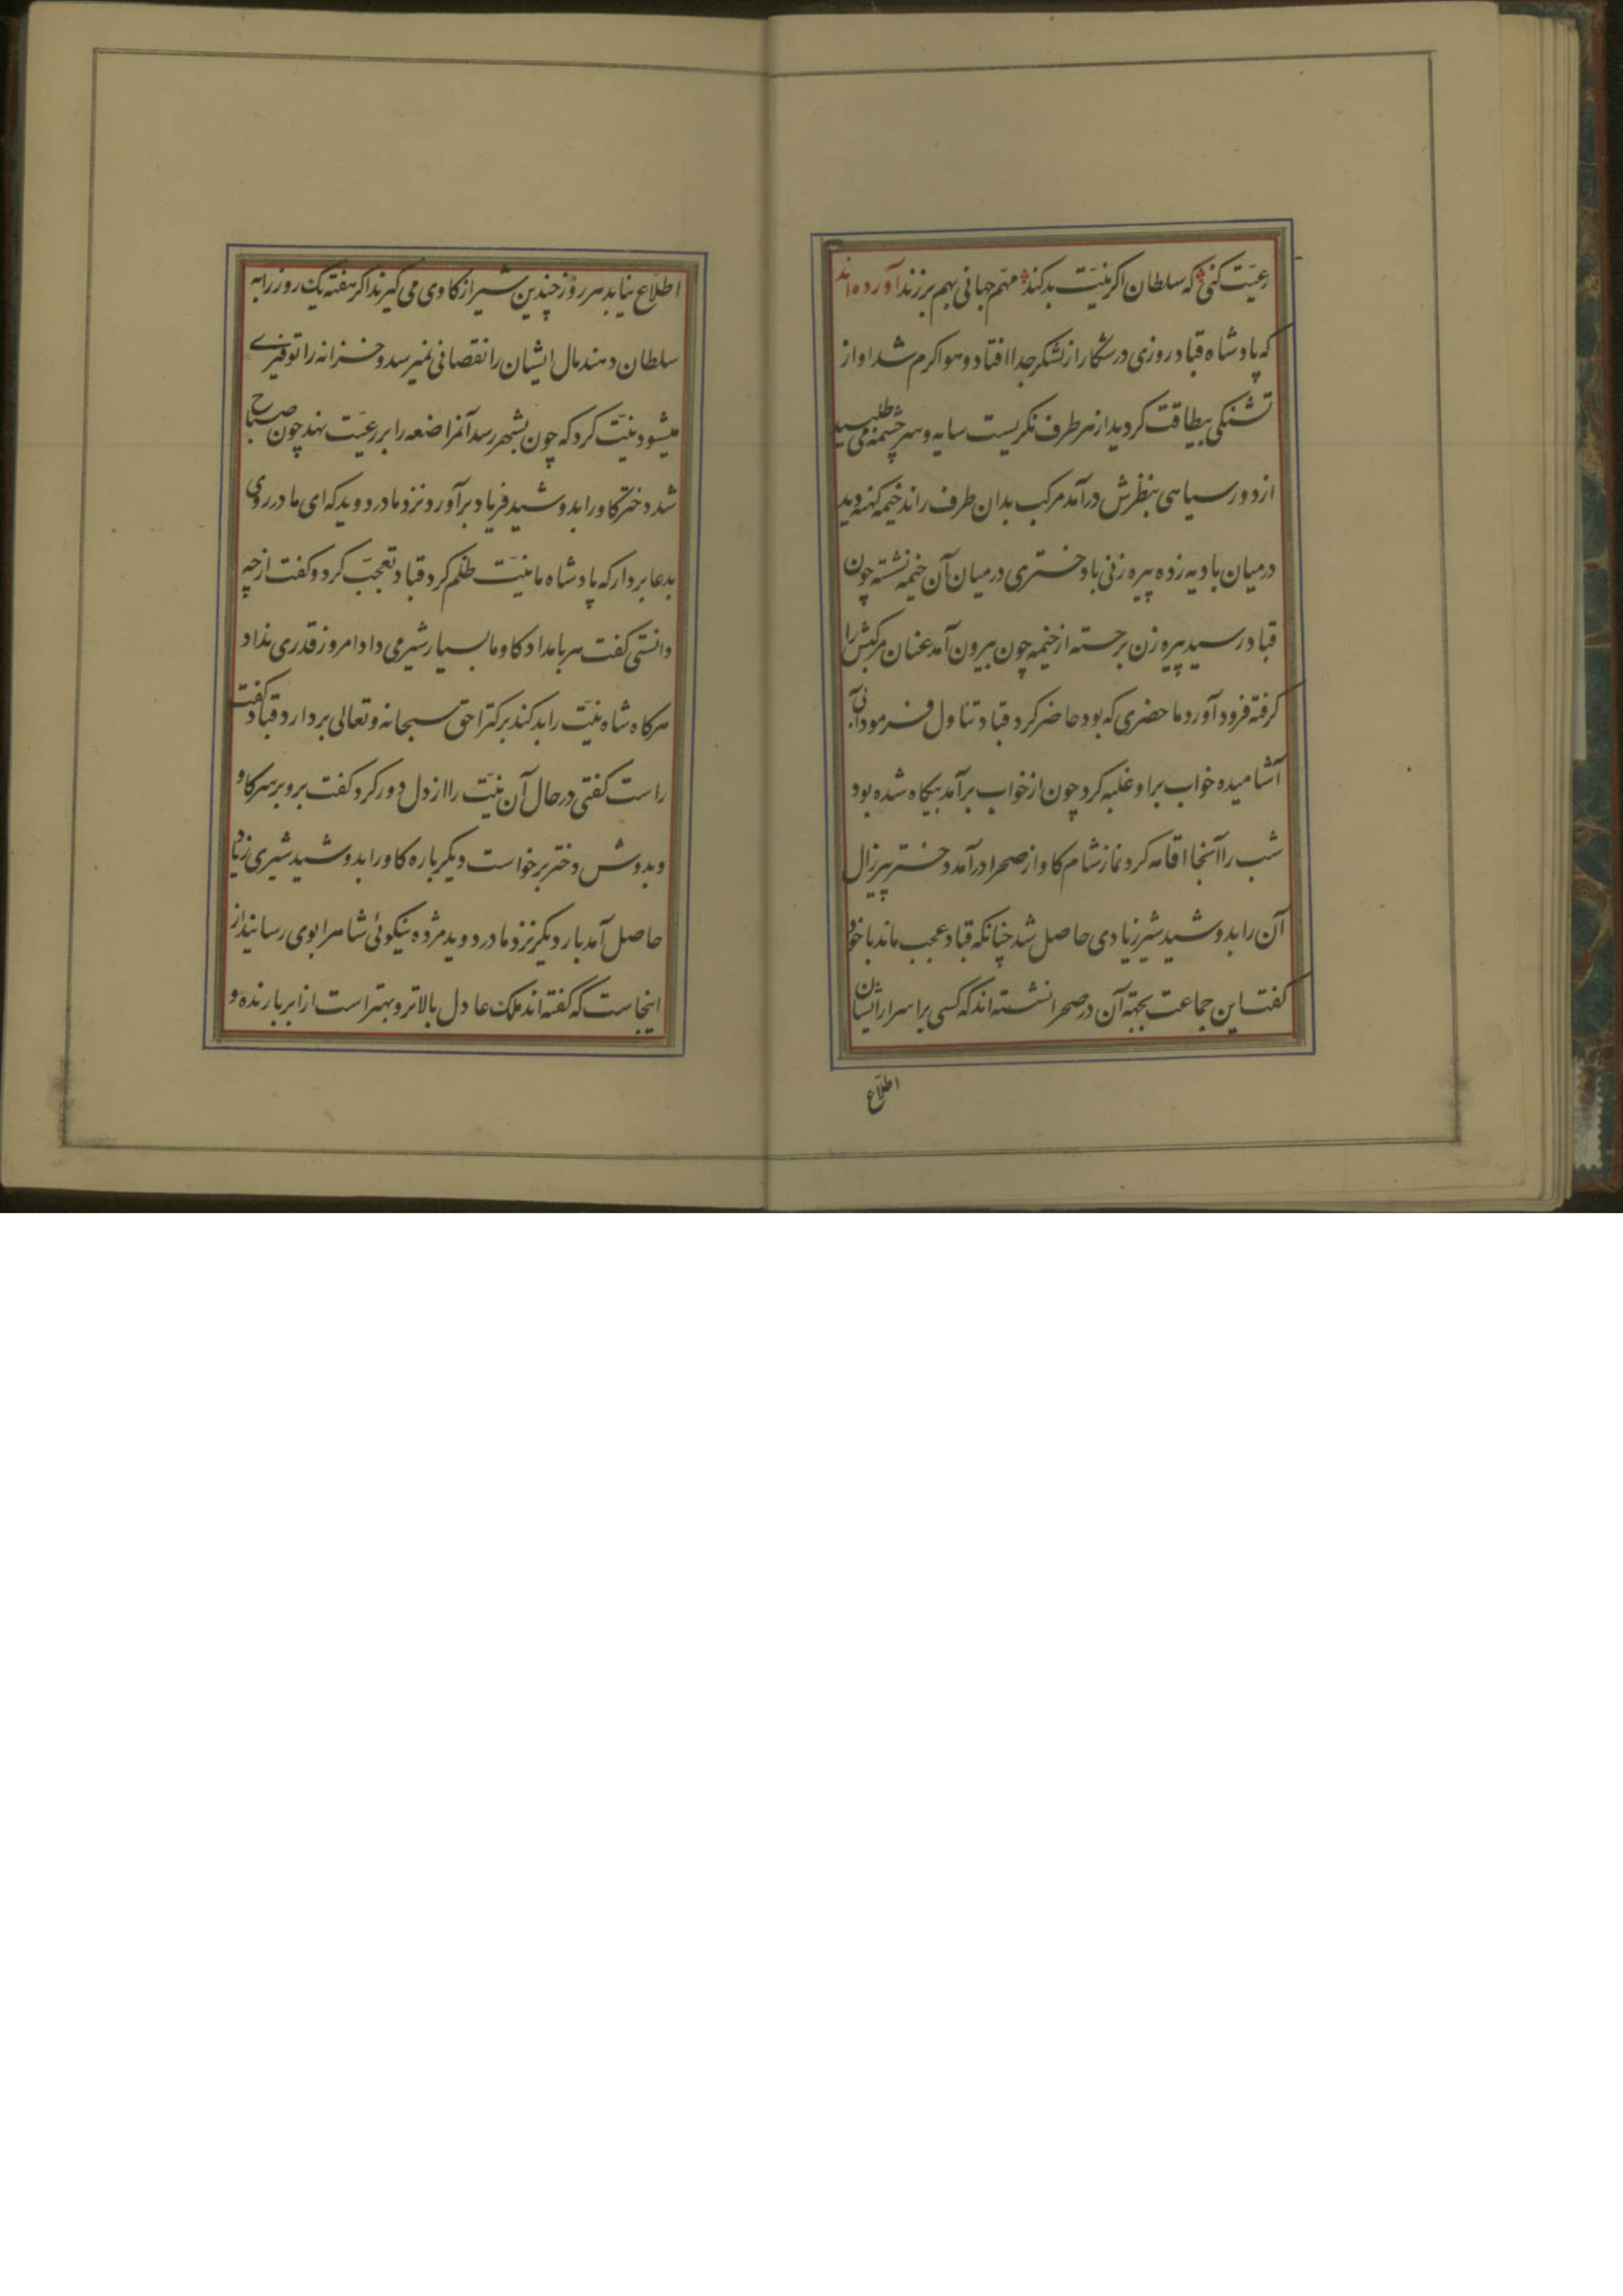 رعیّت کنی که سلطان اکر نیّت بد کند مهمّ جهانی بهم برزند آورده‌اند
که پادشاه قباد روزی در شکار از لشکر جدا افتاد و هوا کرم شد او از
تشنکی بیطاقت کردید از هر طرف نکریست سایه و سرچشمه می طلبید
از دور سیاهی بنظرش درآمد مرکب بدان طرف راند خیمه کهنه دید
در میان بادیه زده پیره زنی با دختری در میان آن خیمه نشسته چون
قباد رسید پیره زن برجسته از خیمه چون بیرون آمد عنان مرکبش را
کرفته فرود آورد ما حضری که بود حاضر کرد قباد تناول فرمود آبی
آشامیده خواب بر او غلبه کرد چون از خواب برآمد بیکاه شده بود
شب را آنجا اقامه کرد نماز شام کاو از صحرا درآمد دختر پیرزال
آن را بدوشید شیر زیادی حاصل شد چنانکه قباد عجب ماند با خود
کفت این جماعت بجهة آن در صحرا نشسته‌اند که کسی بر اسرار ایشان
اطلّاع
اطلّاع نیابد هر روز چندین شیر از کاوی می کیرند اکر هفته یک روز را به
سلطان دهند مال ایشان را نقصانی نمیرسد و خزانه را توفیری
میشود نیّت کرد که چون بشهر رسد آنمراضعه را بر رعیّت نهد چون صباح
شد دختر کاو را بدوشید فریاد برآورد نزد مادر دوید که ای مادر روی
بدعا بردار که پادشاه ما نیّت ظلم کرد قباد تعجّب کرد و کفت از چه
دانستی کفت هر بامداد کاو ما بسیار شیر می داد امروز قدری نداد
هر کاه شاه نیّت را بد کند برکترا حق سبحانه و تعالی بردارد قباد کفت
راست کفتی در حال آن نیّت را از دل دور کرد کفت برو بر سر کاو
و بدوش دختر برخواست دیکر باره کاو را بدوشید شیری زیاد
حاصل آمد بار دیکر نزد مادر دوید مژده نیکوئی شاهرا بوی رسانید از
اینجاست که کفته‌اند ملک عادل بالاتر و بهتر است از ابر بارنده و